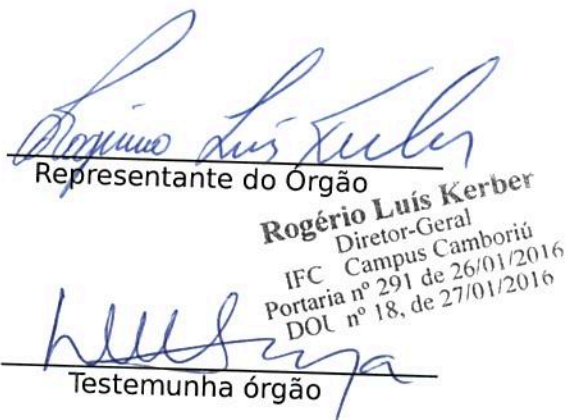 Rogério Luís Kerber
Representante do Órgão
Rogério Luís Kerber
Diretor-Geral
IFC Campus Camboriú
Portaria nº 291 de 26/01/2016
DOU nº 18, de 27/01/2016
Testemunha órgão